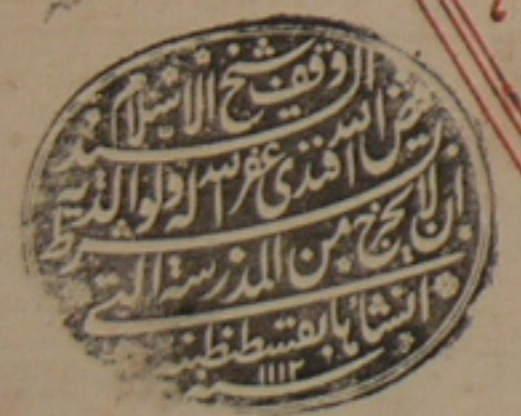 وقف شيخ الاسلام السيد
فيض الله افندى غفر الله له ولوالديه
بشرط ان لا يخرج من المدرسة التى
انشاها بقسطنطينيه
سنه ١١١٢